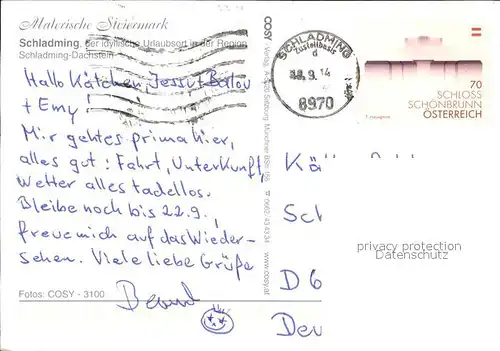 Malerische Steiermark
Schladming, der idyllische Urlaubsort in der Region
Schladming-Dachstein
Hallo Kätchen, Jessy + Balou
+ Emy!
Mir geht es prima hier,
alles gut: Fahrt, Unterkunft,
Wetter alles tadellos.
Bleibe noch bis 22.9.,
freue mich auf das Wieder-
sehen. Viele liebe Grüße
Bernd
Fotos: COSY - 3100
COSY
www.cosy.at
SCHLADMING
Zustellbasis
d
18.9.14
8970
70
SCHLOSS
SCHÖNBRUNN
ÖSTERREICH
Kä
Sch
D 6
Deu
privacy protection
Datenschutz